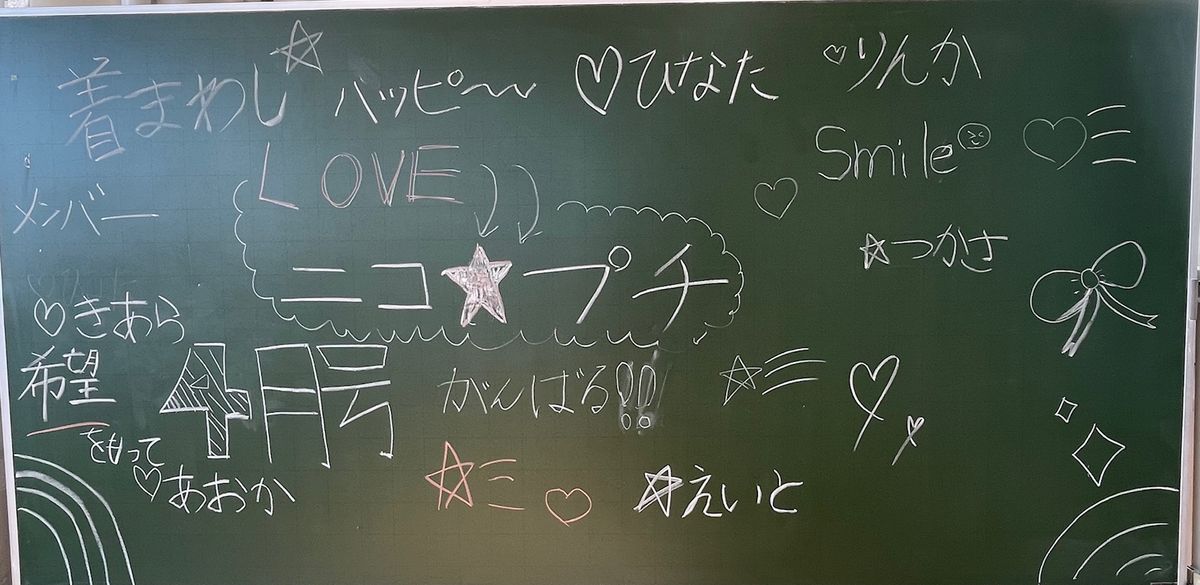 着まわし☆
ハッピ〜
♡ひなた
♡りんか
LOVE
Smile
メンバー
☆つかさ
ニコ★プチ
♡きあら
希望
をもって
4月号
がんばる!!
♡あおか
☆えいと